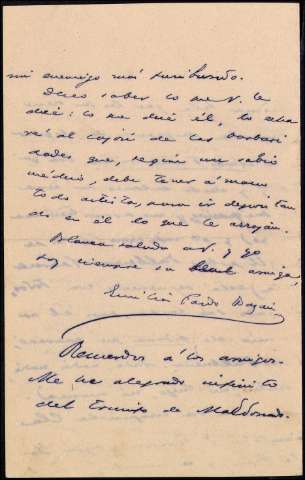 mi enemigo más furibundo.
Deseo saber lo que V. le
dice: lo que dice él, lo echa
ré al cajón de las barbari
dades que, según un sabio
médico, debe tener á mano
todo artista, para ir depositan
do en él lo que le arrojan.
Blanca saluda á V. y yo
soy siempre su leal amiga,
Emilia Pardo Bazán
Recuerdos á los amigos.
Me he alegrado infinito
del triunfo de Maldonado.